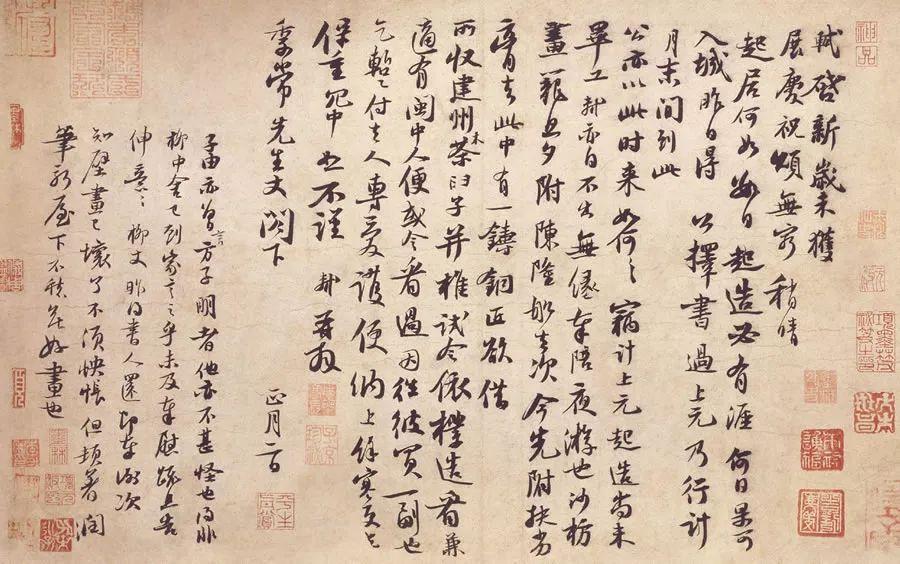 軾啓新歲未獲
展慶祝頌無窮稍晴
起居何如數日起造必有涯何日果可
入城昨日得公擇書過上元乃行計
月末間到此
公亦以此時来如何〻竊計上元起造尚未
畢工軾亦自不出無緣奉陪夜游也沙枋
畫籠旦夕附陳隆船去次今先附扶劣
膏去此中有一鑄銅匠欲借
所收建州木茶臼子并椎試令依樣造看兼
適有閩中人便或令看過因往彼買一副也
乞暫付去人專愛護便納上餘寒更乞
保重冗中恕不謹軾再拜
季常先生丈閤下
正月二日
子由亦曾言方子明者他亦不甚怪也得非
柳中舍已到家言之乎未及奉慰疏且告
伸意〻柳丈昨得書人還即奉謝次
知壁畫已壞了不須怏悵但頓著潤
筆新屋下不愁無好畫也